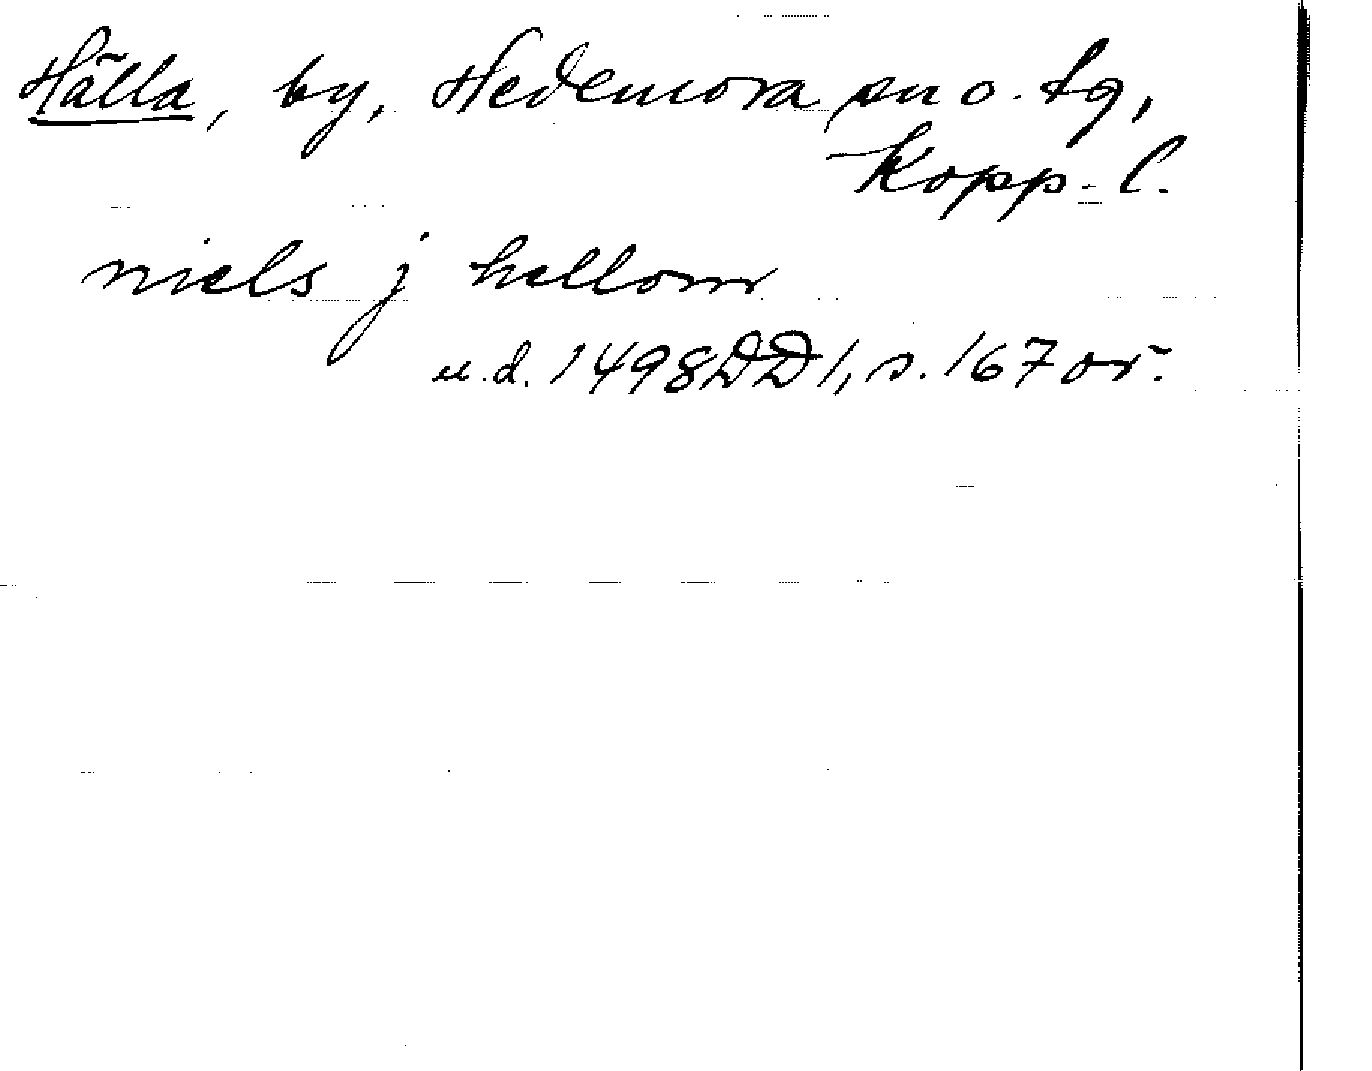 Hälla, by, Hedemora sn o. tg,
Kopp. l.
niels j hellom
u.d. 1498 DD 1, s. 167 or.